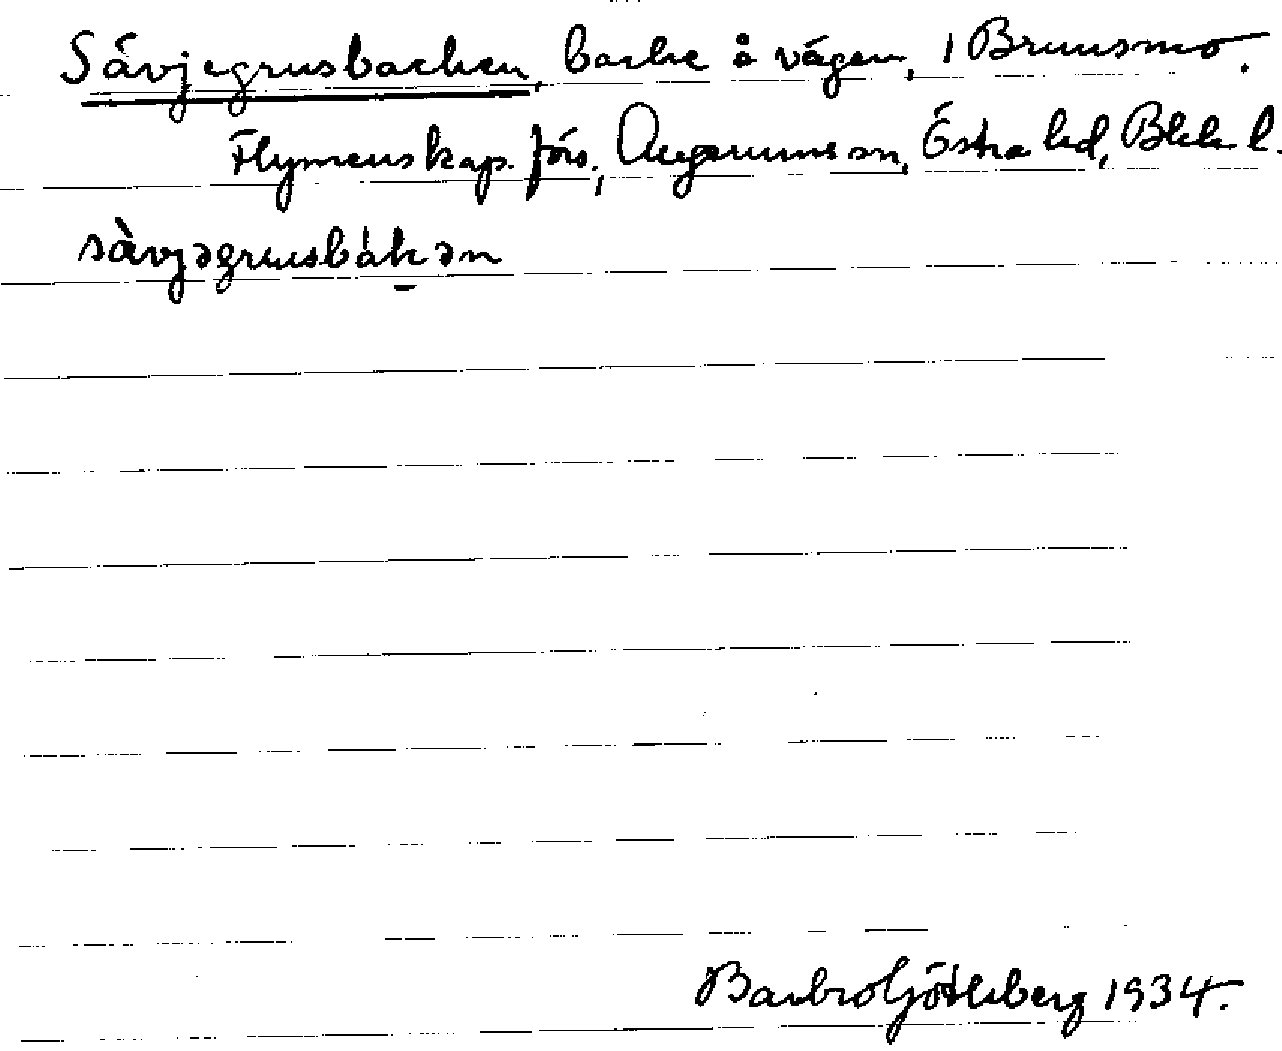 Sävjegrusbacken, backe å vägen, i Bruusmo.
Flymenskap. förs., Augerums sn, Östra hd, Blek. l.
sàvjəgrusbák ən
Barbro Götleberg 1934.